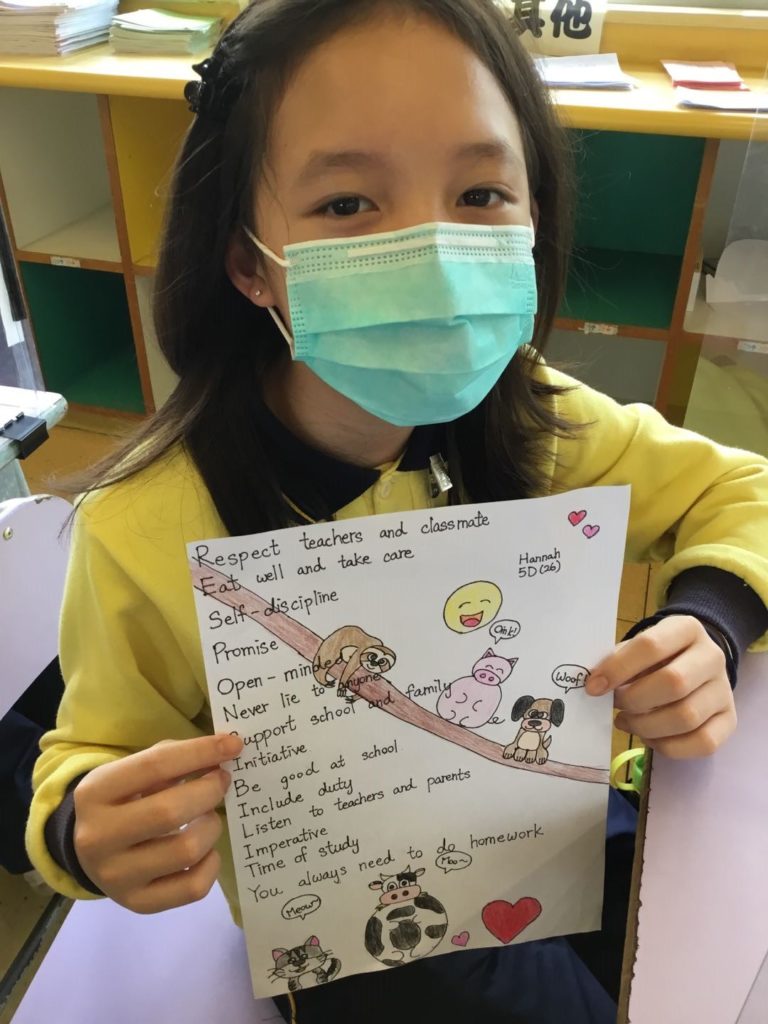 其他
Respect teachers and classmate
Eat well and take care
Hannah
5D(26)
Self-discipline
Promise
Oink!
Open-minded
Never lie to anyone
Woof!
Support school and family
Initiative
Be good at school
Include duty
Listen to teachers and parents
Imperative
Time of study
You always need to do homework
Moo~
Meow~